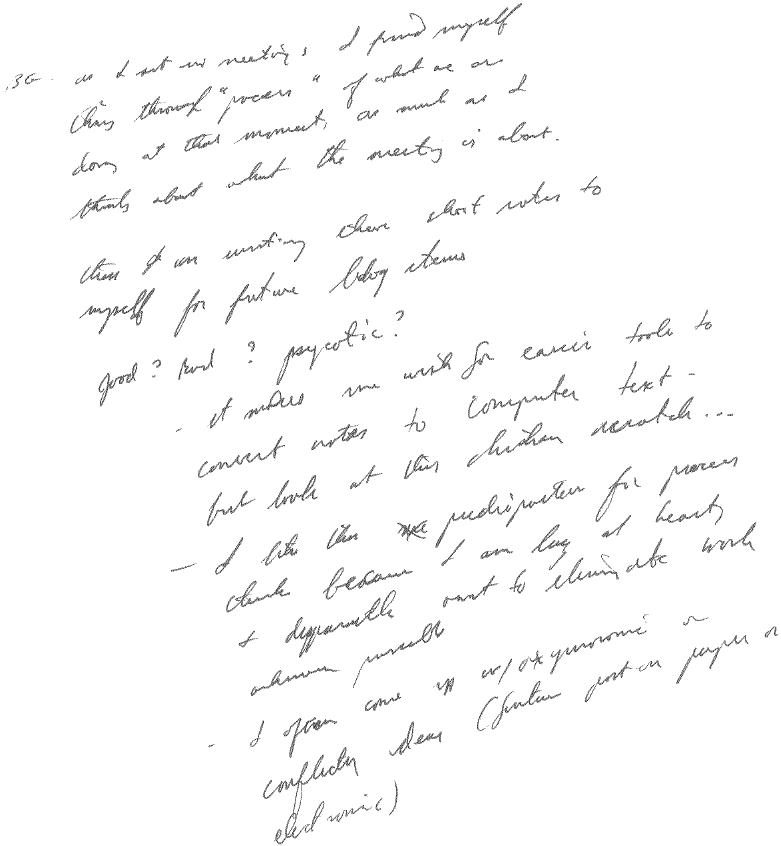 as I sit in meetings I find myself
thking through "process" of what we are
doing at that moment, as much as I
think about what the meeting is about.
then I am writing these short notes to
myself for future blog items
good? bad? psycotic?
- it makes me wish for easier tools to
convert notes to computer text -
but look at this chicken scratch...
- I like this predisposition for process
think because I am lazy at heart
+ desperately want to eliminate work
wherever possible
- I often come up w/ oxymoronic or
conflicting ideas (future post on paper or
electronic)